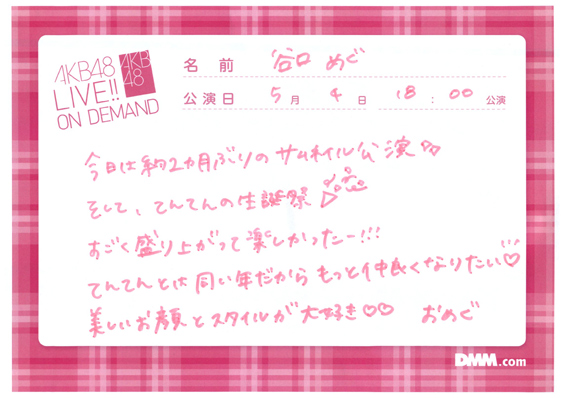 AKB48
LIVE!!
ON DEMAND
AKB
48
名前 谷口 めぐ
公演日 5月 4日 18:00公演
今日は約2ヵ月ぶりのサムネイル公演♡♡
そして、てんてんの生誕祭
すごく盛り上がって楽しかったー!!!
てんてんとは同い年だからもっと仲良くなりたい♡
美しいお顔とスタイルが大好き♡♡ おめぐ
DMM.com